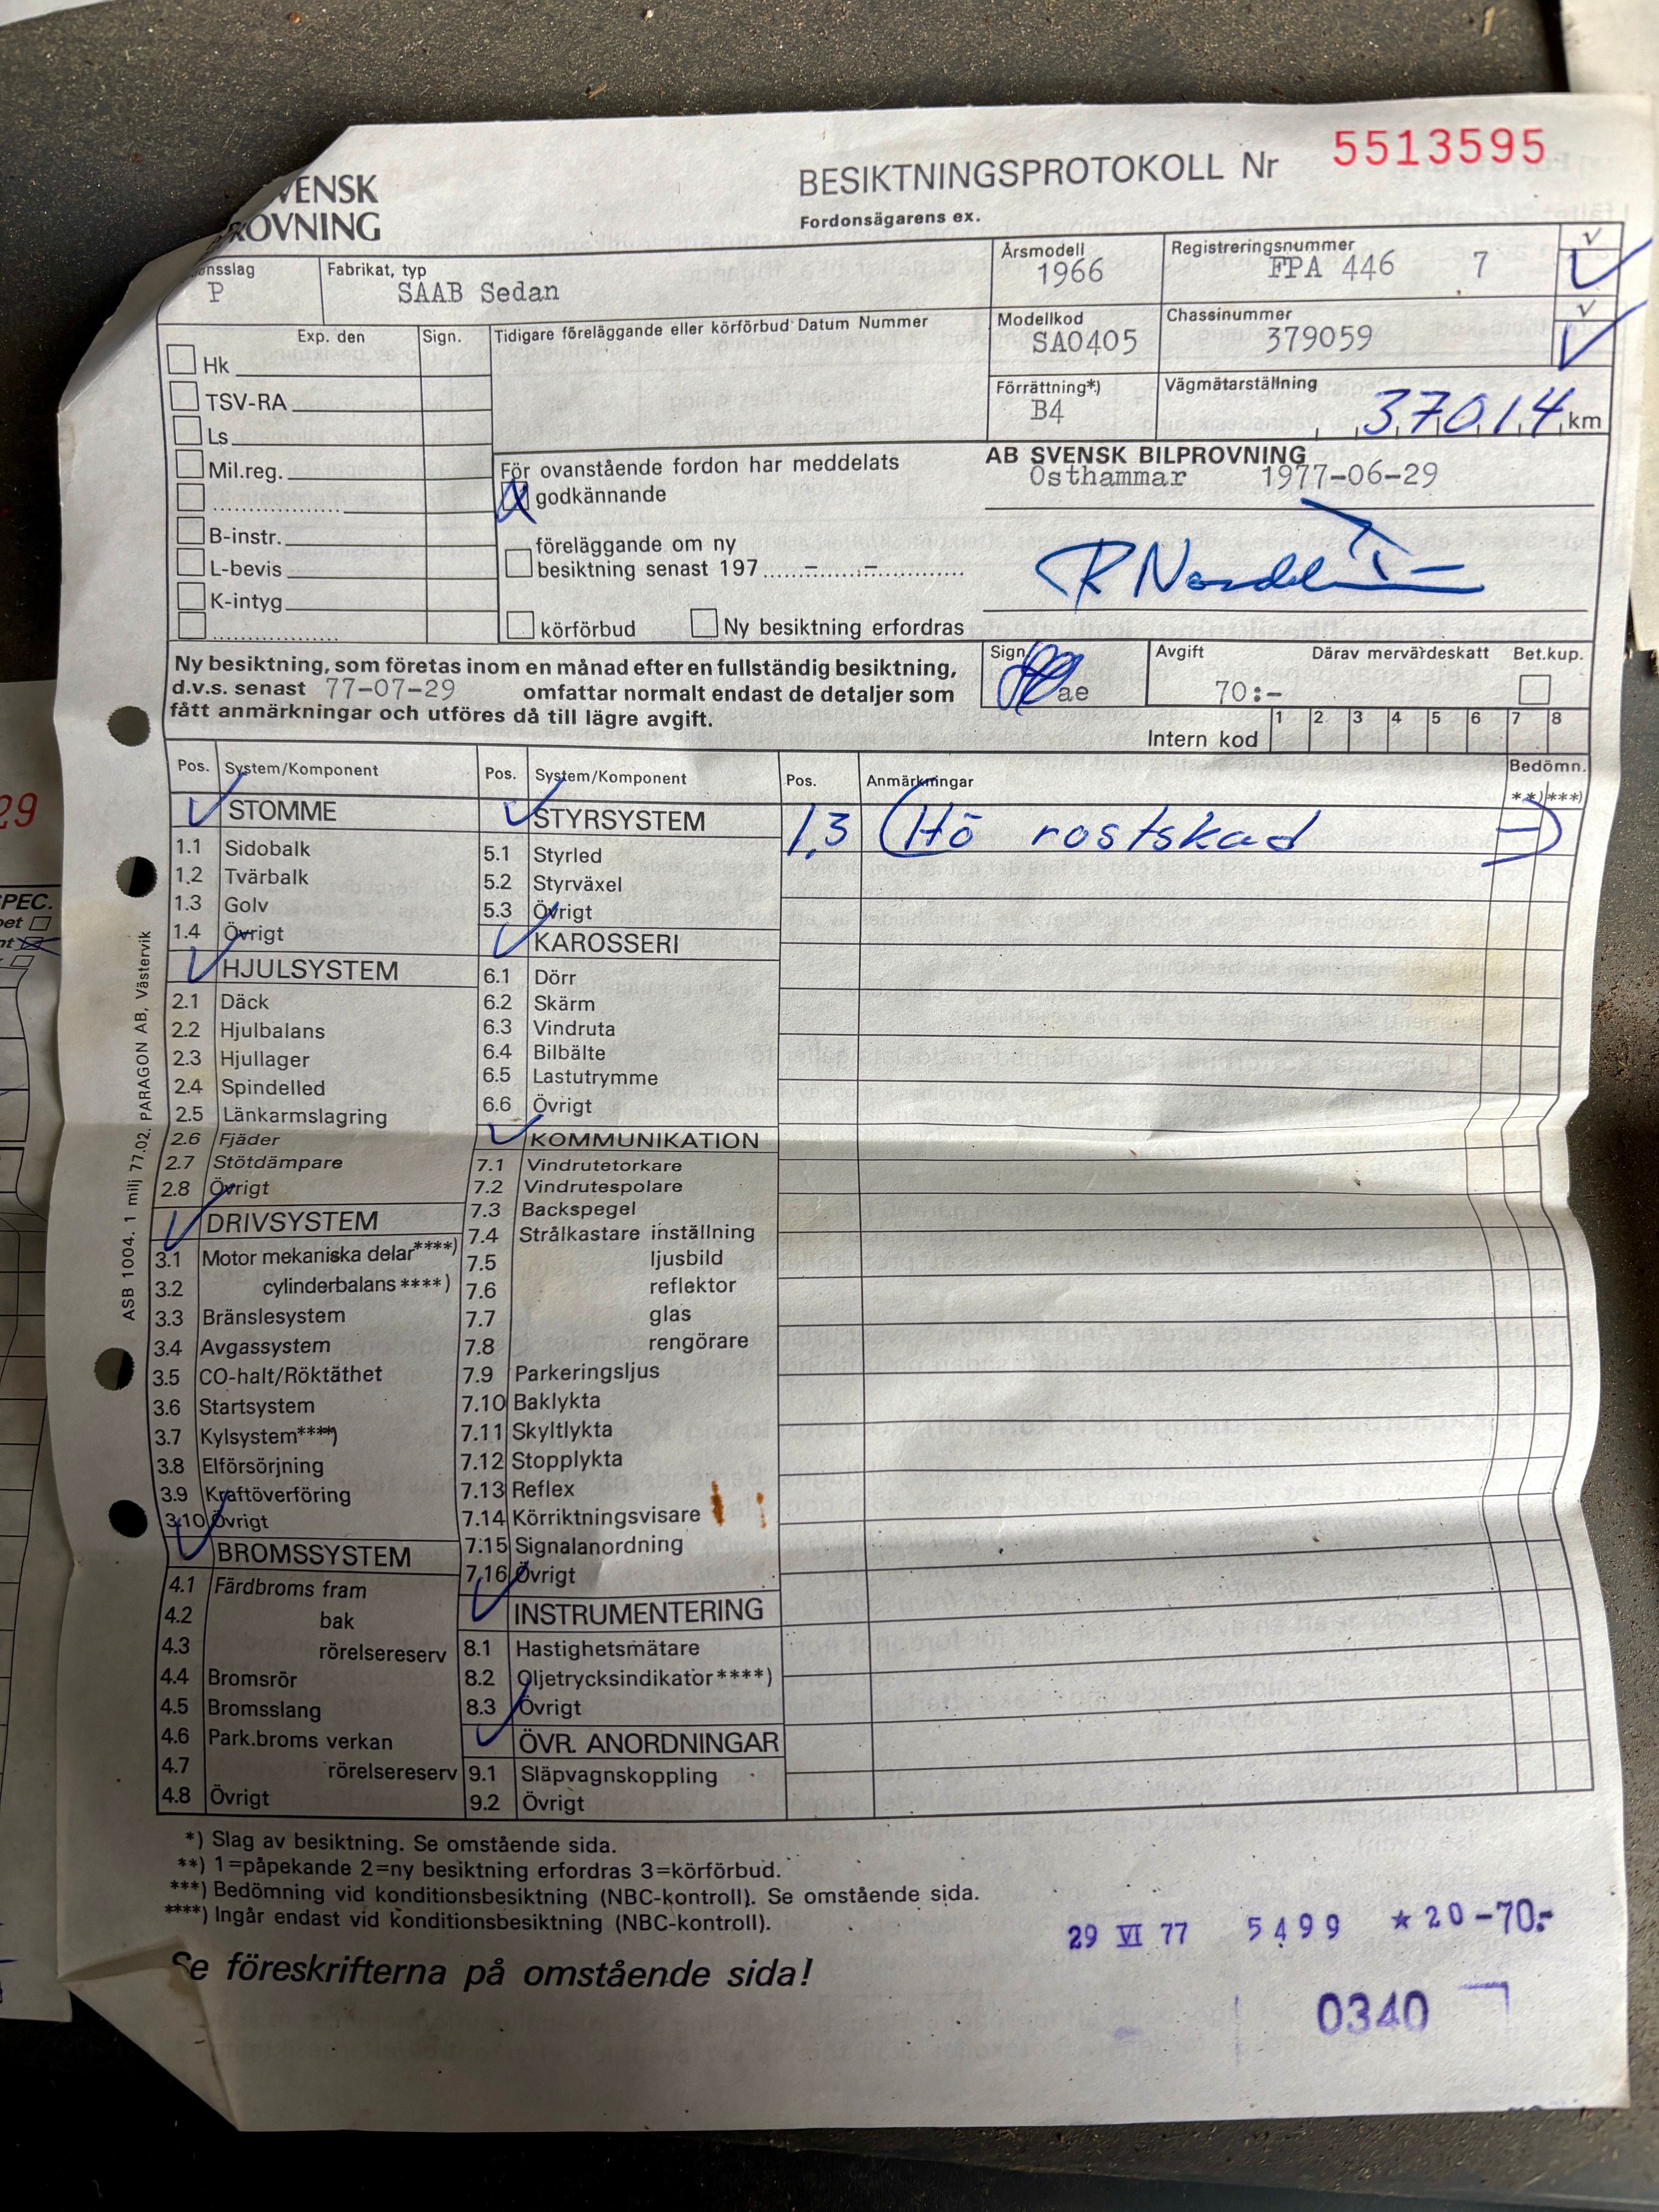 VENSK
ROVNING
BESIKTNINGSPROTOKOLL Nr 5513595
Fordonsägarens ex.
onsslag
P
Fabrikat, typ
SAAB Sedan
Årsmodell
1966
Registreringsnummer
FPA 446 7
√
Modellkod
SA0405
Chassinummer
379059
√
Förrättning*)
B4
Vägmätarställning
37014 km
Exp. den Sign.
Hk
TSV-RA
Ls
Mil.reg.
B-instr.
L-bevis
K-intyg
Tidigare föreläggande eller körförbud Datum Nummer
För ovanstående fordon har meddelats
godkännande
föreläggande om ny
besiktning senast 197
körförbud Ny besiktning erfordras
AB SVENSK BILPROVNING
Osthammar 1977-06-29
Ny besiktning, som företas inom en månad efter en fullständig besiktning,
d.v.s. senast 77-07-29 omfattar normalt endast de detaljer som
fått anmärkningar och utföres då till lägre avgift.
Sign.
ae
Avgift
70:-
Därav mervärdeskatt
Bet.kup.
Intern kod 1 2 3 4 5 6 7 8
Pos. System/Komponent
STOMME
1.1 Sidobalk
1.2 Tvärbalk
1.3 Golv
1.4 Övrigt
HJULSYSTEM
2.1 Däck
2.2 Hjulbalans
2.3 Hjullager
2.4 Spindelled
2.5 Länkarmslagring
2.6 Fjäder
2.7 Stötdämpare
2.8 Övrigt
DRIVSYSTEM
3.1 Motor mekaniska delar****)
3.2 cylinderbalans****)
3.3 Bränslesystem
3.4 Avgassystem
3.5 CO-halt/Röktäthet
3.6 Startsystem
3.7 Kylsystem****)
3.8 Elförsörjning
3.9 Kraftöverföring
3.10 Övrigt
BROMSSYSTEM
4.1 Färdbroms fram
4.2 bak
4.3 rörelsereserv
4.4 Bromsrör
4.5 Bromsslang
4.6 Park.broms verkan
4.7 rörelsereserv
4.8 Övrigt
Pos. System/Komponent
STYRSYSTEM
5.1 Styrled
5.2 Styrväxel
5.3 Övrigt
KAROSSERI
6.1 Dörr
6.2 Skärm
6.3 Vindruta
6.4 Bilbälte
6.5 Lastutrymme
6.6 Övrigt
KOMMUNIKATION
7.1 Vindrutetorkare
7.2 Vindrutespolare
7.3 Backspegel
7.4 Strålkastare inställning
7.5 ljusbild
7.6 reflektor
7.7 glas
7.8 rengörare
7.9 Parkeringsljus
7.10 Baklykta
7.11 Skyltlykta
7.12 Stopplykta
7.13 Reflex
7.14 Körriktningsvisare
7.15 Signalanordning
7.16 Övrigt
INSTRUMENTERING
8.1 Hastighetsmätare
8.2 Oljetrycksindikator****)
8.3 Övrigt
ÖVR. ANORDNINGAR
9.1 Släpvagnskoppling
9.2 Övrigt
Pos. Anmärkningar Bedömn.
**) ***)
1,3 (Hö rostskad –)
*) Slag av besiktning. Se omstående sida.
**) 1=påpekande 2=ny besiktning erfordras 3=körförbud.
***) Bedömning vid konditionsbesiktning (NBC-kontroll). Se omstående sida.
****) Ingår endast vid konditionsbesiktning (NBC-kontroll).
Se föreskrifterna på omstående sida!
29 VI 77 5499 ★20-70:-
0340
ASB 1004. 1 milj 77.02. PARAGON AB, Västervik
29
PEC.